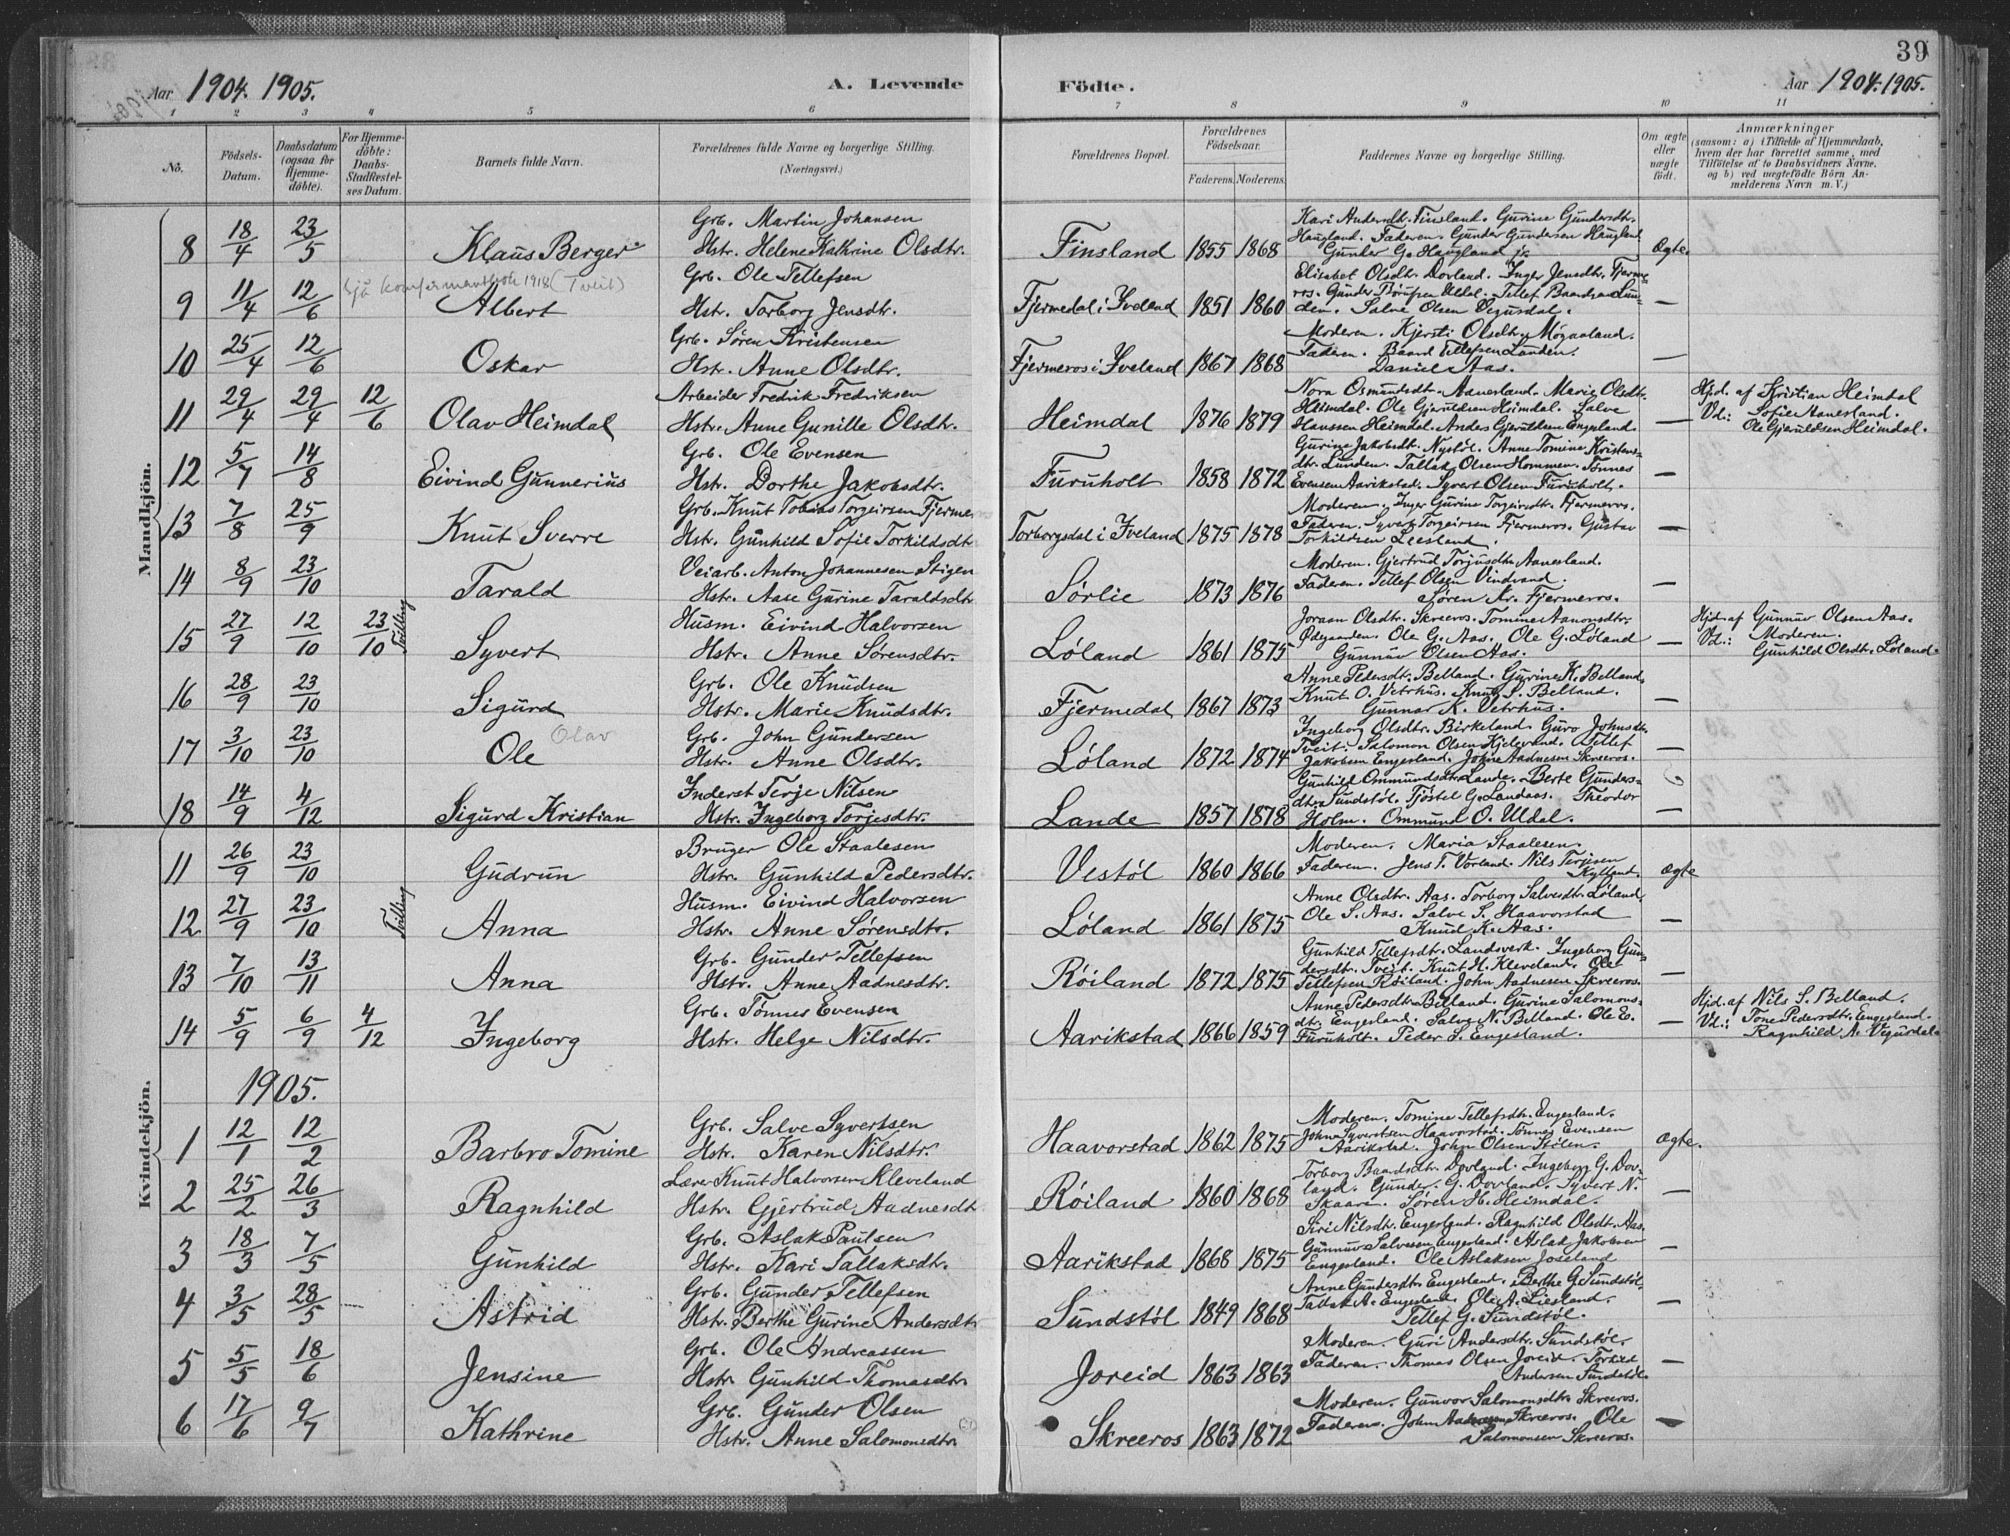 39
Aar 1904. 1905. A. Levende Födte. Aar 1904. 1905.
1 2 3 4 5 6 7 8 9 10 11
No. Födsels-Datum. Daabsdatum (ogsaa for Hjemme-döbte). For Hjemme-döbte: Daabs-Stadfæstel-ses Datum. Barnets fulde Navn. Forældrenes fulde Navne og borgerlige Stilling. (Næringsvei.) Forældrenes Bopæl. Forældrenes Födselsaar. Faderens. Moderens. Faddernes Navne og borgerlige Stilling. Om ægte eller uægte födt. Anmærkninger (saasom: a) i Tilfælde af Hjemmedaab, hvem der har forrettet samme, med Tilföielse af to Daabsvidners Navne. og b) ved uægtefödte Börn An-melderens Navn m. V.)
Mandkjön.
8 18/4 23/5 Klaus Berger Grb. Martin Johansen
Hstr. Helene Kathrine Olsdtr. Finsland 1855 1868 Kari Andersdt. Finsland. Gurine Gundersdtr.
Haugland. Faderen. Gunder Gundersen Haugland
Gunder G. Haugland jr. Ægte.
9 11/4 12/6 Sjå konfirmantliste 1918 (Tveit)
Albert Grb. Ole Tellefsen
Hstr. Torborg Jensdtr. Fjermedal i Iveland 1851 1860 Elisabet Olsdtr. Dovland. Inger Jensdtr. Fjerme-
ros. Gunder Uldal. Tellef Baardsen Lun-
den. Salve Olsen Vegusdal. —
10 25/4 12/6 Oskar Grb. Sören Kristensen
Hstr. Anne Olsdtr. Fjermeros i Iveland 1867 1868 Moderen. Kjersti Olsdtr. Møgaaland.
Faderen. Baard Tellefsen Lunden.
Daniel Aas. —
11 29/4 29/4 12/6 Olav Heimdal Arbeider Fredrik Fredriksen
Hstr. Anne Gunille Olsdtr. Heimdal 1876 1879 Nora Osmundsdt. Aanesland. Marie Olsdtr.
Heimdal. Ole Gjeruldsen Heimdal. Salve
Hanssen Heimdal. Anders Gjeruldsen Engesland. — Hjd. af Kristian Heimdal
Vd.: Sofie Aanesland.
Ole Gjeruldsen Heimdal.
12 5/7 14/8 Eivind Gunnerius Grb. Ole Evensen
Hstr. Dorthe Jakobsdtr. Furuholt 1858 1872 Gurine Jakobsdt. Nystöl. Anne Tomine Kristens-
dtr. Lunden. Tallak Olsen Hommen. Tönnes
Evensen Aarikstad. Syvert Olsen Furuholt. —
13 7/8 25/9 Knut Sverre Grb. Knut Tobias Torgeirsen Fjermeros
Hstr. Gunhild Sofie Torkildsdtr. Torborgsdal i Iveland 1875 1878 Moderen. Inger Gurine Torgeirsdtr. Fjermeros.
Faderen. Syvert Torgeirsen Fjermeros. Gustav
Torkildsen Liesland. —
14 8/9 23/10 Tarald Veiarb. Anton Johannesen Stigen
Hstr. Aase Gurine Taraldsdtr Sørlie 1873 1876 Moderen. Gjertrud Torjusdtr. Aanesland.
Faderen. Tellef Olsen Vindvand.
Søren Kr. Fjermeros. —
15 27/9 12/10 23/10 Tvilling Syvert Husm. Eivind Halvorsen
Hstr. Anne Sørensdtr. Løland 1861 1875 Joraan Olsdtr. Skreeros. Tomine Aanonsdtr.
Ødegaarden. Ole G. Aas. Ole G. Løland
Gunnuv Olsen Aas. — Hjd. af Gunnuv Olsen Aas.
Vd.: Moderen.
Gunhild Olsdtr. Løland.
16 28/9 23/10 Sigurd Grb. Ole Knudsen
Hstr. Marie Knudsdtr. Fjermedal 1867 1873 Anne Pedersdt. Belland. Gurine K. Belland.
Knut O. Vetrhus. Knut S. Belland.
Gunnar K. Vetrhus. —
17 3/10 23/10 Ole Olav Grb. John Gundersen
Hstr. Anne Olsdtr. Løland 1872 1874 Ingeborg Olsdtr. Birkeland. Guro Johnsdtr.
Tveit. Salomon Olsen Kjelevand. Tellef
Jakobsen Engesland. John Aadnesen Skreeros. —
18 14/9 4/12 Sigurd Kristian Inderst Terje Nilsen
Hstr. Ingeborg Torjesdtr. Lande 1857 1878 Gunhild Ommundsdtr. Lande. Berte Gunders-
dtr. Sundstöl. Tjöstel G. Landaas. Theodor
Holm. Ommund O. Uldal. —
Kvindekjön.
11 26/9 23/10 Gudrun Bruger Ole Staalesen
Hstr. Gunhild Pedersdtr. Vestøl 1860 1866 Moderen. Maria Staalesen.
Faderen. Jens T. Vorland. Nils Terjesen
Kylland. Ægte
12 27/9 23/10 Tvilling Anna Husm. Eivind Halvorsen
Hstr. Anne Sørensdtr. Løland 1861 1875 Anne Olsdtr. Aas. Torborg Salvesdtr. Løland.
Ole S. Aas. Salve S. Haavorstad
Knud K. Aas. —
13 7/10 13/11 Anna Grb. Gunder Tellefsen
Hstr. Anne Aadnesdtr. Røiland 1872 1875 Gunhild Tellefsdtr. Landsverk. Ingeborg Gun-
dersdtr. Tveit. Knut H. Kleveland. Ole
Tellefsen Røiland. John Aadnesen Skreeros. —
14 5/9 6/9 4/12 Ingeborg Grb. Tönnes Evensen
Hstr. Helge Nilsdtr. Aarikstad 1866 1859 Anne Pedersdtr. Belland. Gurine Salomons-
dtr. Engesland. Salve N. Belland. Ole E.
Furuholt. Peder S. Engesland. — Hjd. af Nils S. Belland.
Vd.: Tone Pedersdtr. Engesland.
Ragnhild A. Vegusdal.
1905.
1 12/1 12/2 Barbro Tomine Grb. Salve Syvertsen
Hstr. Karen Nilsdtr. Haavorstad 1862 1875 Moderen. Tomine Tellefsdtr. Engesland.
John Syvertsen Haavorstad. Tönnes Evensen
Aarikstad. John Olsen Stölen. Ægte.
2 25/2 26/3 Ragnhild Lærer Knut Halvorsen Kleveland
Hstr. Gjertrud Aadnesdtr Røiland 1860 1868 Torborg Baardsdtr. Dovland. Ingeborg G. Dov-
land. Gunder G. Dovland. Syvert N.
Skaare. Søren H. Heimdal. —
3 18/3 7/5 Gunhild Grb. Aslak Paulsen
Hstr. Kari Tallaksdtr. Aarikstad 1868 1875 Siri Nilsdtr. Engesland. Ragnhild Olsdt. Aas.
Gunnuv Salvesen Engesland. Aslak Jakobsen
Engesland. Ole Aslaksen Joreland —
4 3/5 28/5 Astrid Grb. Gunder Tellefsen
Hstr. Berthe Gurine Andersdtr Sundstøl 1849 1868 Anne Gundersdtr. Engesland. Berthe G. Sundstöl.
Tallak A. Engesland. Ole A. Liesland.
Tellef G. Sundstöl. —
5 5/5 18/6 Jensine Grb. Ole Andreassen
Hstr. Gunhild Thomasdtr Joreid 1863 1863 Moderen. Guri Andersdtr. Sundstöl.
Faderen. Thomas Olsen Joreid. Torkild
Andersen Sundstöl. —
6 17/6 9/7 Kathrine Grb. Gunder Olsen
Hstr. Anne Salomonsdtr Skreeros 1863 1872 Moderen. Gunvor Salomonsdtr. Skreeros.
Faderen. John Aadnesen Skreeros. Ole
Salomonsen Skreeros. —